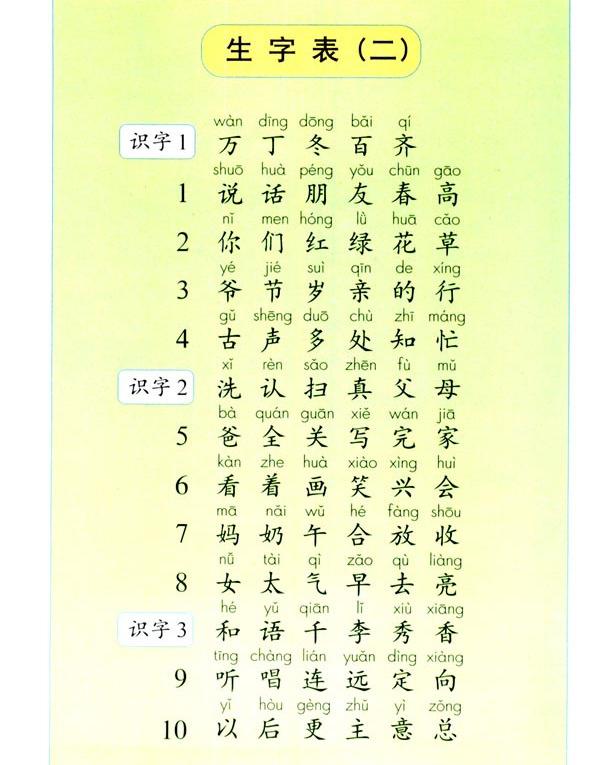 生字表（二）
wàn dīng dōng bǎi qí
识字1 万 丁 冬 百 齐
shuō huà péng yǒu chūn gāo
1 说 话 朋 友 春 高
nǐ men hóng lǜ huā cǎo
2 你 们 红 绿 花 草
yé jié suì qīn de xíng
3 爷 节 岁 亲 的 行
gǔ shēng duō chù zhī máng
4 古 声 多 处 知 忙
xǐ rèn sǎo zhēn fù mǔ
识字2 洗 认 扫 真 父 母
bà quán guān xiě wán jiā
5 爸 全 关 写 完 家
kàn zhe huà xiào xìng huì
6 看 着 画 笑 兴 会
mā nǎi wǔ hé fàng shōu
7 妈 奶 午 合 放 收
nǚ tài qì zǎo qù liàng
8 女 太 气 早 去 亮
hé yǔ qiān lǐ xiù xiāng
识字3 和 语 千 李 秀 香
tīng chàng lián yuǎn dìng xiàng
9 听 唱 连 远 定 向
yǐ hòu gèng zhǔ yì zǒng
10 以 后 更 主 意 总